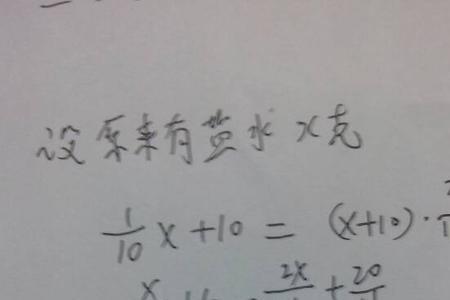 设原来有盐水 x克
1/10 x + 10 = (x+10)·
2x + 20